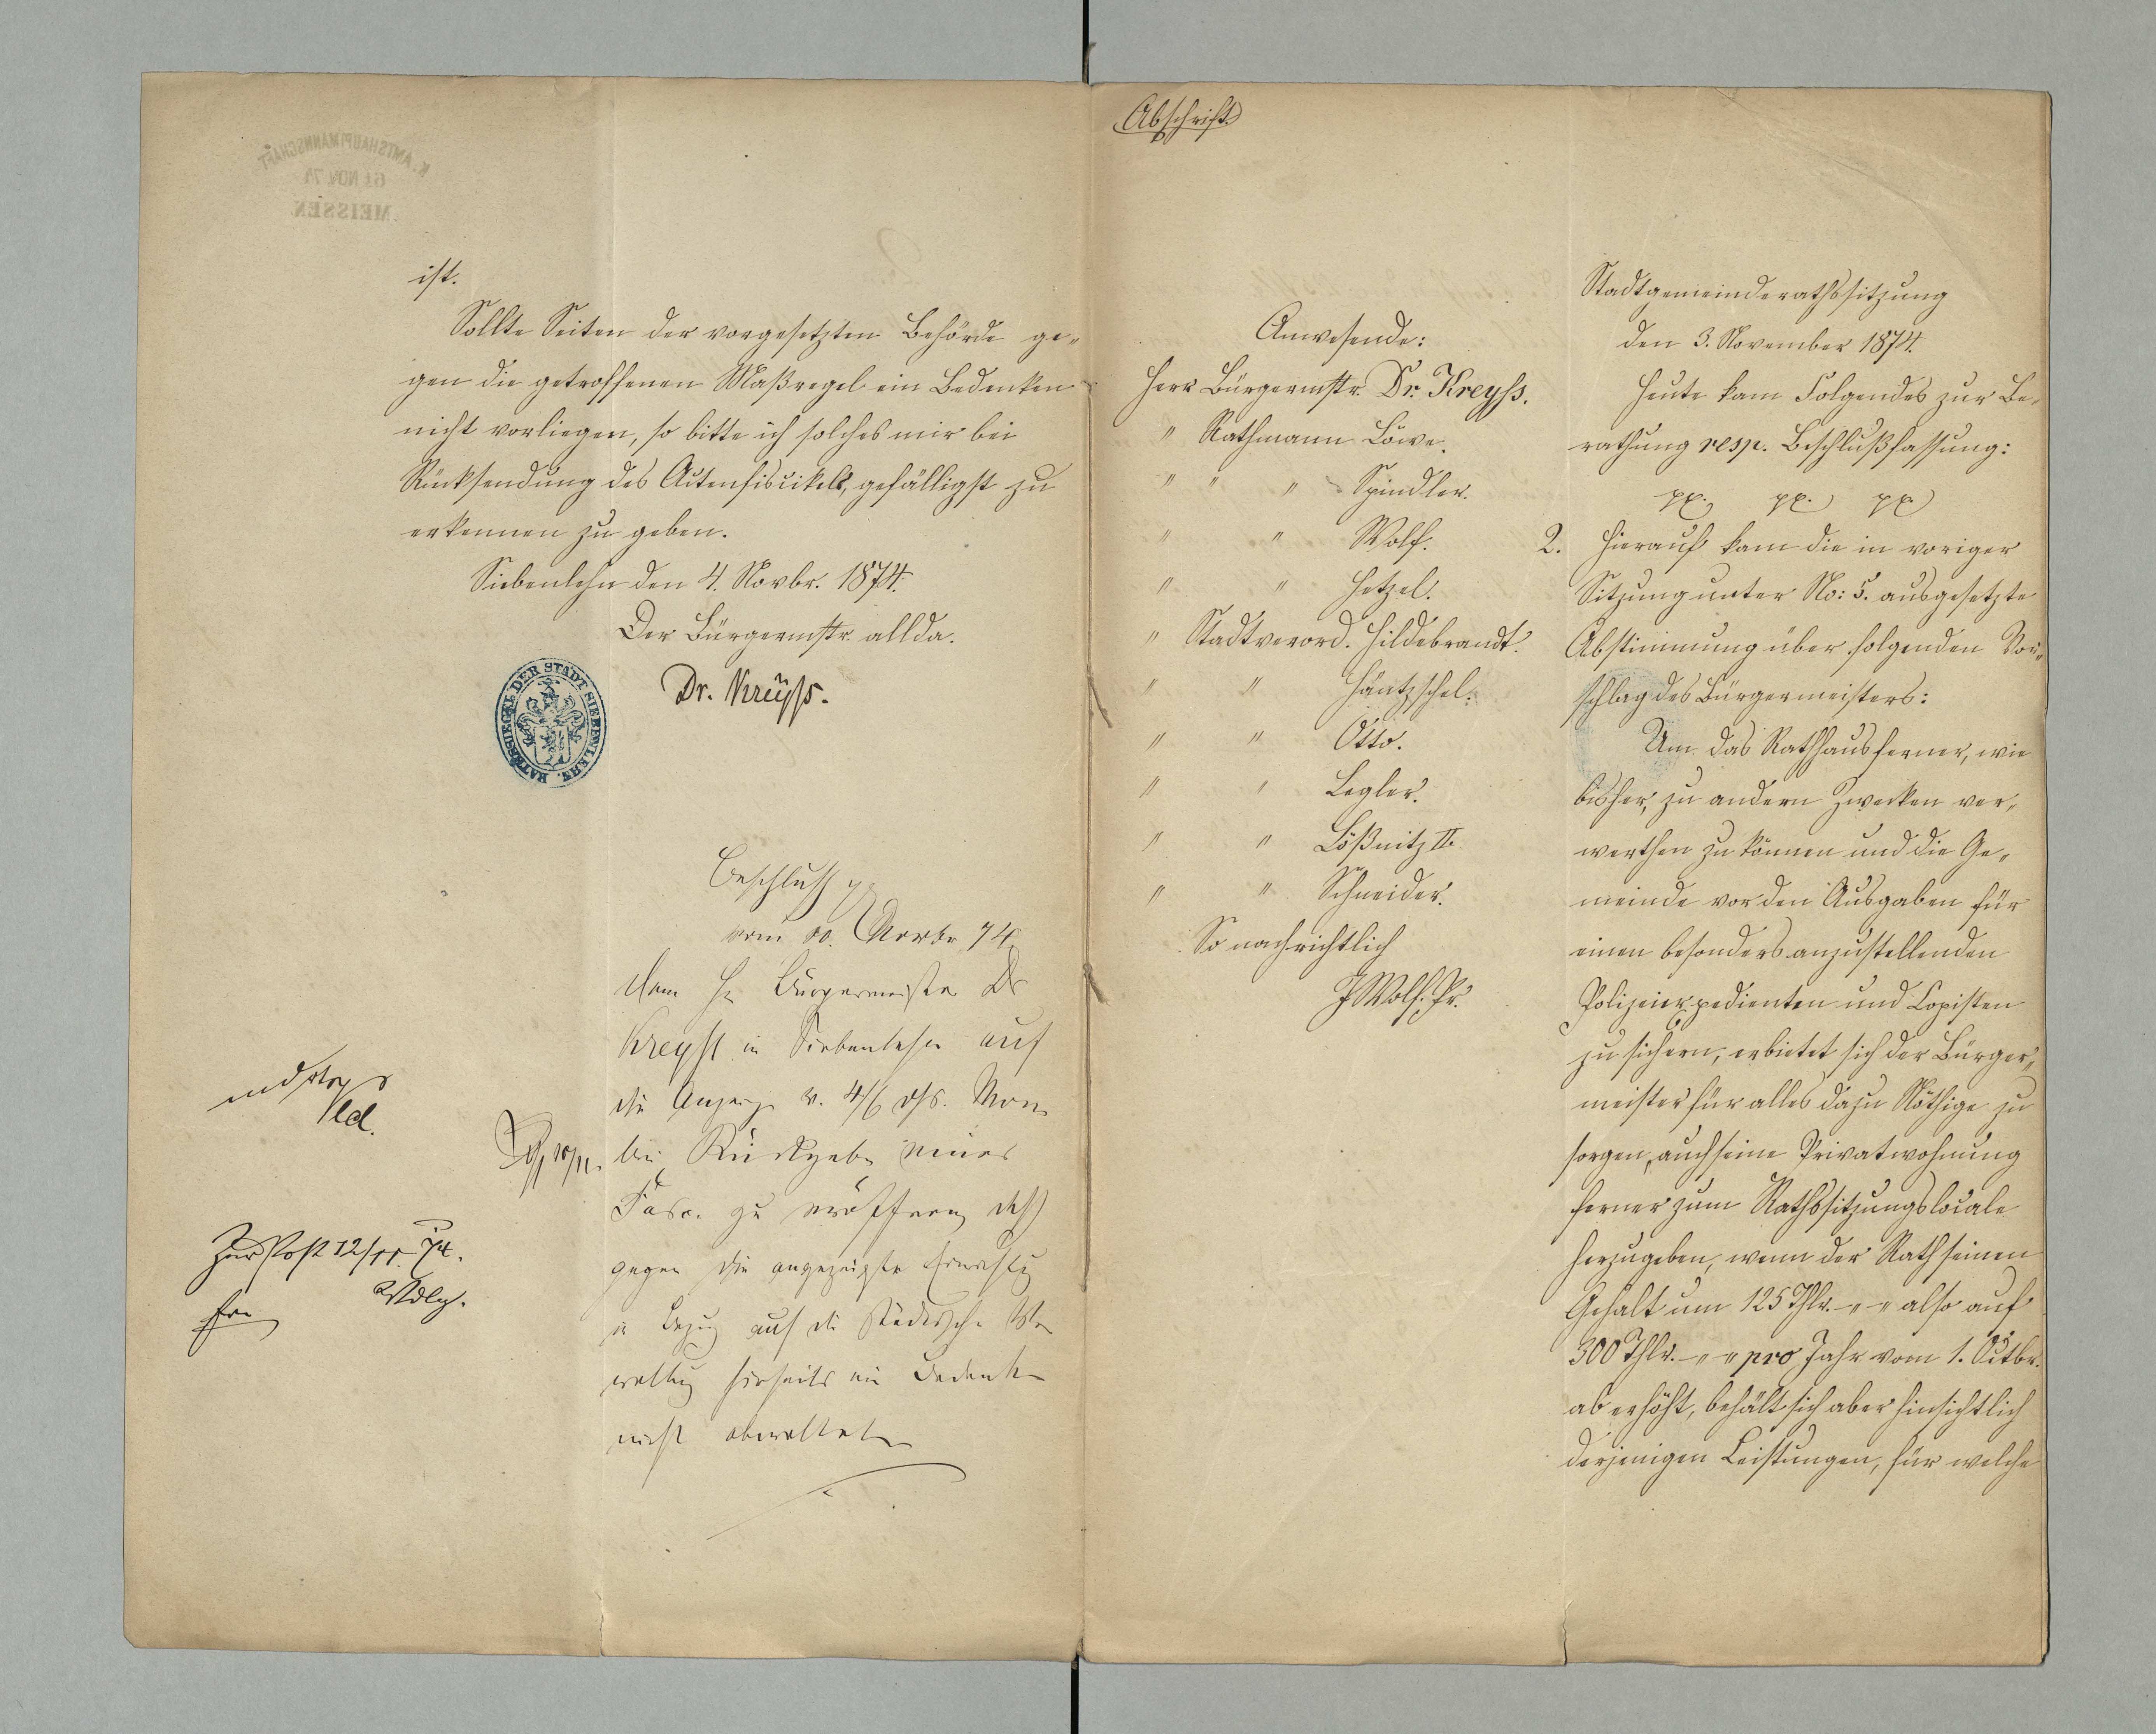 ist.
Sollte Seiten der vorgesetzten Behörde ge-
gen die getroffenen Maßregel ein Bedenken
nicht vorliegen, so bitte ich solches mir bei
Rücksendung des Actenfiscikels, gefälligst zu
erkennen zu geben.
Siebenlehn den 4. Novbr. 1874.
Der Bürgermstr. allda.
Dr. Kreyß.
RATHSSIEGEL DER STADT SIEBENLEHN.
K. AMTSHAUPTMANNSCHAFT
6 NOV. 74
MEISSEN
Beschluß
vom 10. Novbr 74
dem H. Bürgermeister Dr
Kreyßl in Siebenlehn auf
die Anzeige v. 4/6 dss. Mon.
bei Rückgabe seines
Fasc. zu eröffnen daß
gegen die angezeigte
in Bezug auf die städtische Ver
waltung hierseits ein Bedenken
nicht obwaltet
10/11.
Zur Post 12/11. 74.
Abschrift.
Anwesende:
Herr Bürgermstr. Dr. Kreyss.
" Rathmann Löwe.
" " " Spindler.
" " Wolf.
" " Hetzel.
" Stadtverord. Hildebrandt.
" " Häntzschel.
" " Otto.
" " Legler.
" " Lößnitz II.
" " Schneider.
So nachrichtlich
J Wolf. Pr.
Stadtgemeinderathssitzung
den 3. November 1874.
Heute kam Folgendes zur Be-
rathung resp. Beschlußfassung:
pp. pp. pp.
2. Hierauf kam die in voriger
Sitzung unter No: 5. ausgesetzte
Abstimmung über folgenden Vor-
schlag des Bürgermeisters:
Um das Rathhaus ferner, wie
bisher, zu andern Zwecken ver-
werthen zu können und die Ge-
meinde vor den Ausgaben für
einen besonders anzustellenden
Polizeiexpedienten und Copisten
zu sichern, erbietet sich der Bürger-
meister für alles dazu Nöthige zu
sorgen, auch seine Privatwohnung
ferner zum Rathssitzungslocale
herzugeben, wenn der Rath seinen
Gehalt um 125 Thlr. - " - " also auf
300 Thlr. - " - " pro Jahr vom 1. Octbr.
ab erhöht, behält sich aber hinsichtlich
derjenigen Leistungen, für welche